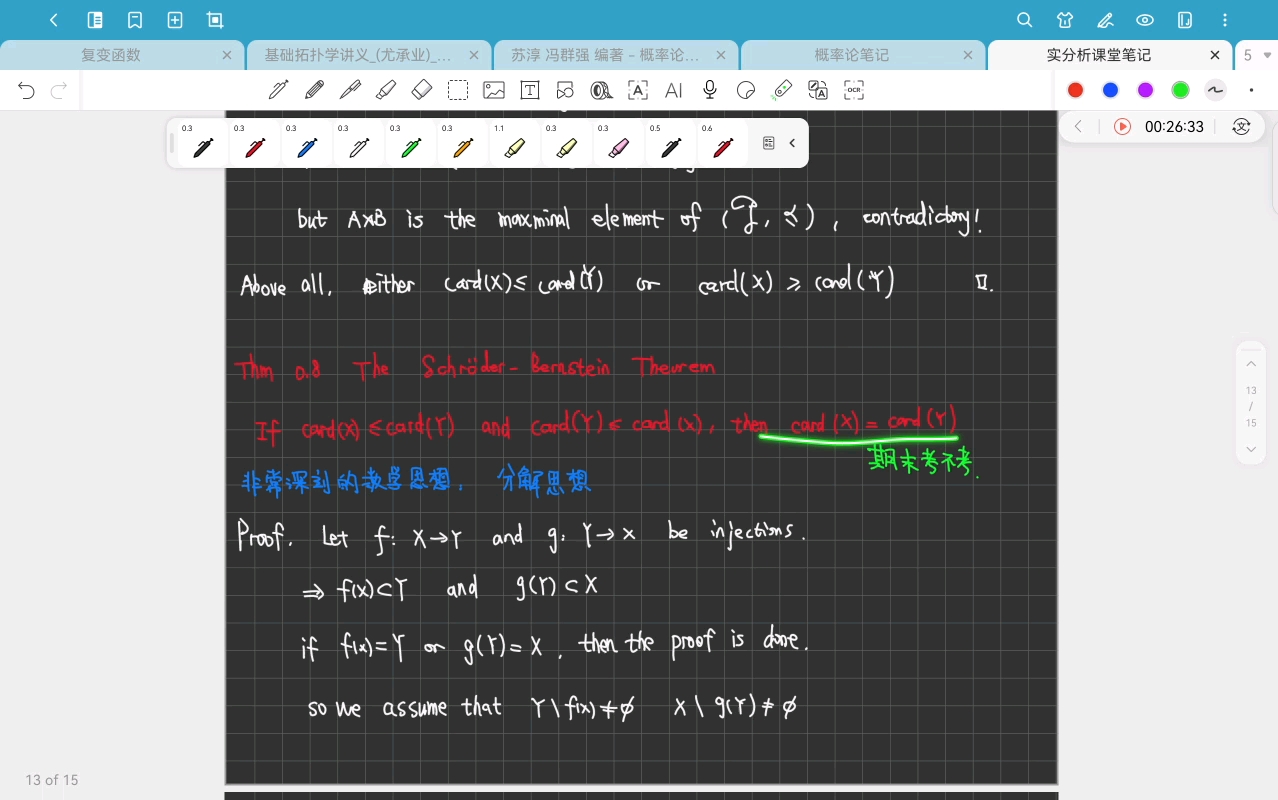 复变函数 ×
基础拓扑学讲义_(尤承业)_... ×
苏淳 冯群强 编著 - 概率论... ×
概率论笔记 ×
实分析课堂笔记 ×
5
T A AI OCR
0.3 0.3 0.3 0.3 0.3 0.3 1.1 0.3 0.3 0.5 0.6
00:26:33
but A×B is the maxminal element of (J, ≼), contradictory!
Above all, either card(X)≤ card(Y) or card(X) ≥ card(Y) □.
Thm 0.8 The Schröder-Bernstein Theurem
If card(X) ≤ card(Y) and card(Y) ≤ card(X), then card(X) = card(Y)
期末考不考.
非常深刻的数学思想. 分解思想
Proof. Let f: X→Y and g: Y→X be injections.
⇒ f(X)⊂Y and g(Y)⊂X
if f(X)=Y or g(Y)=X, then the proof is done.
so we assume that Y\f(X)≠∅ X\g(Y)≠∅
13
/
15
13 of 15